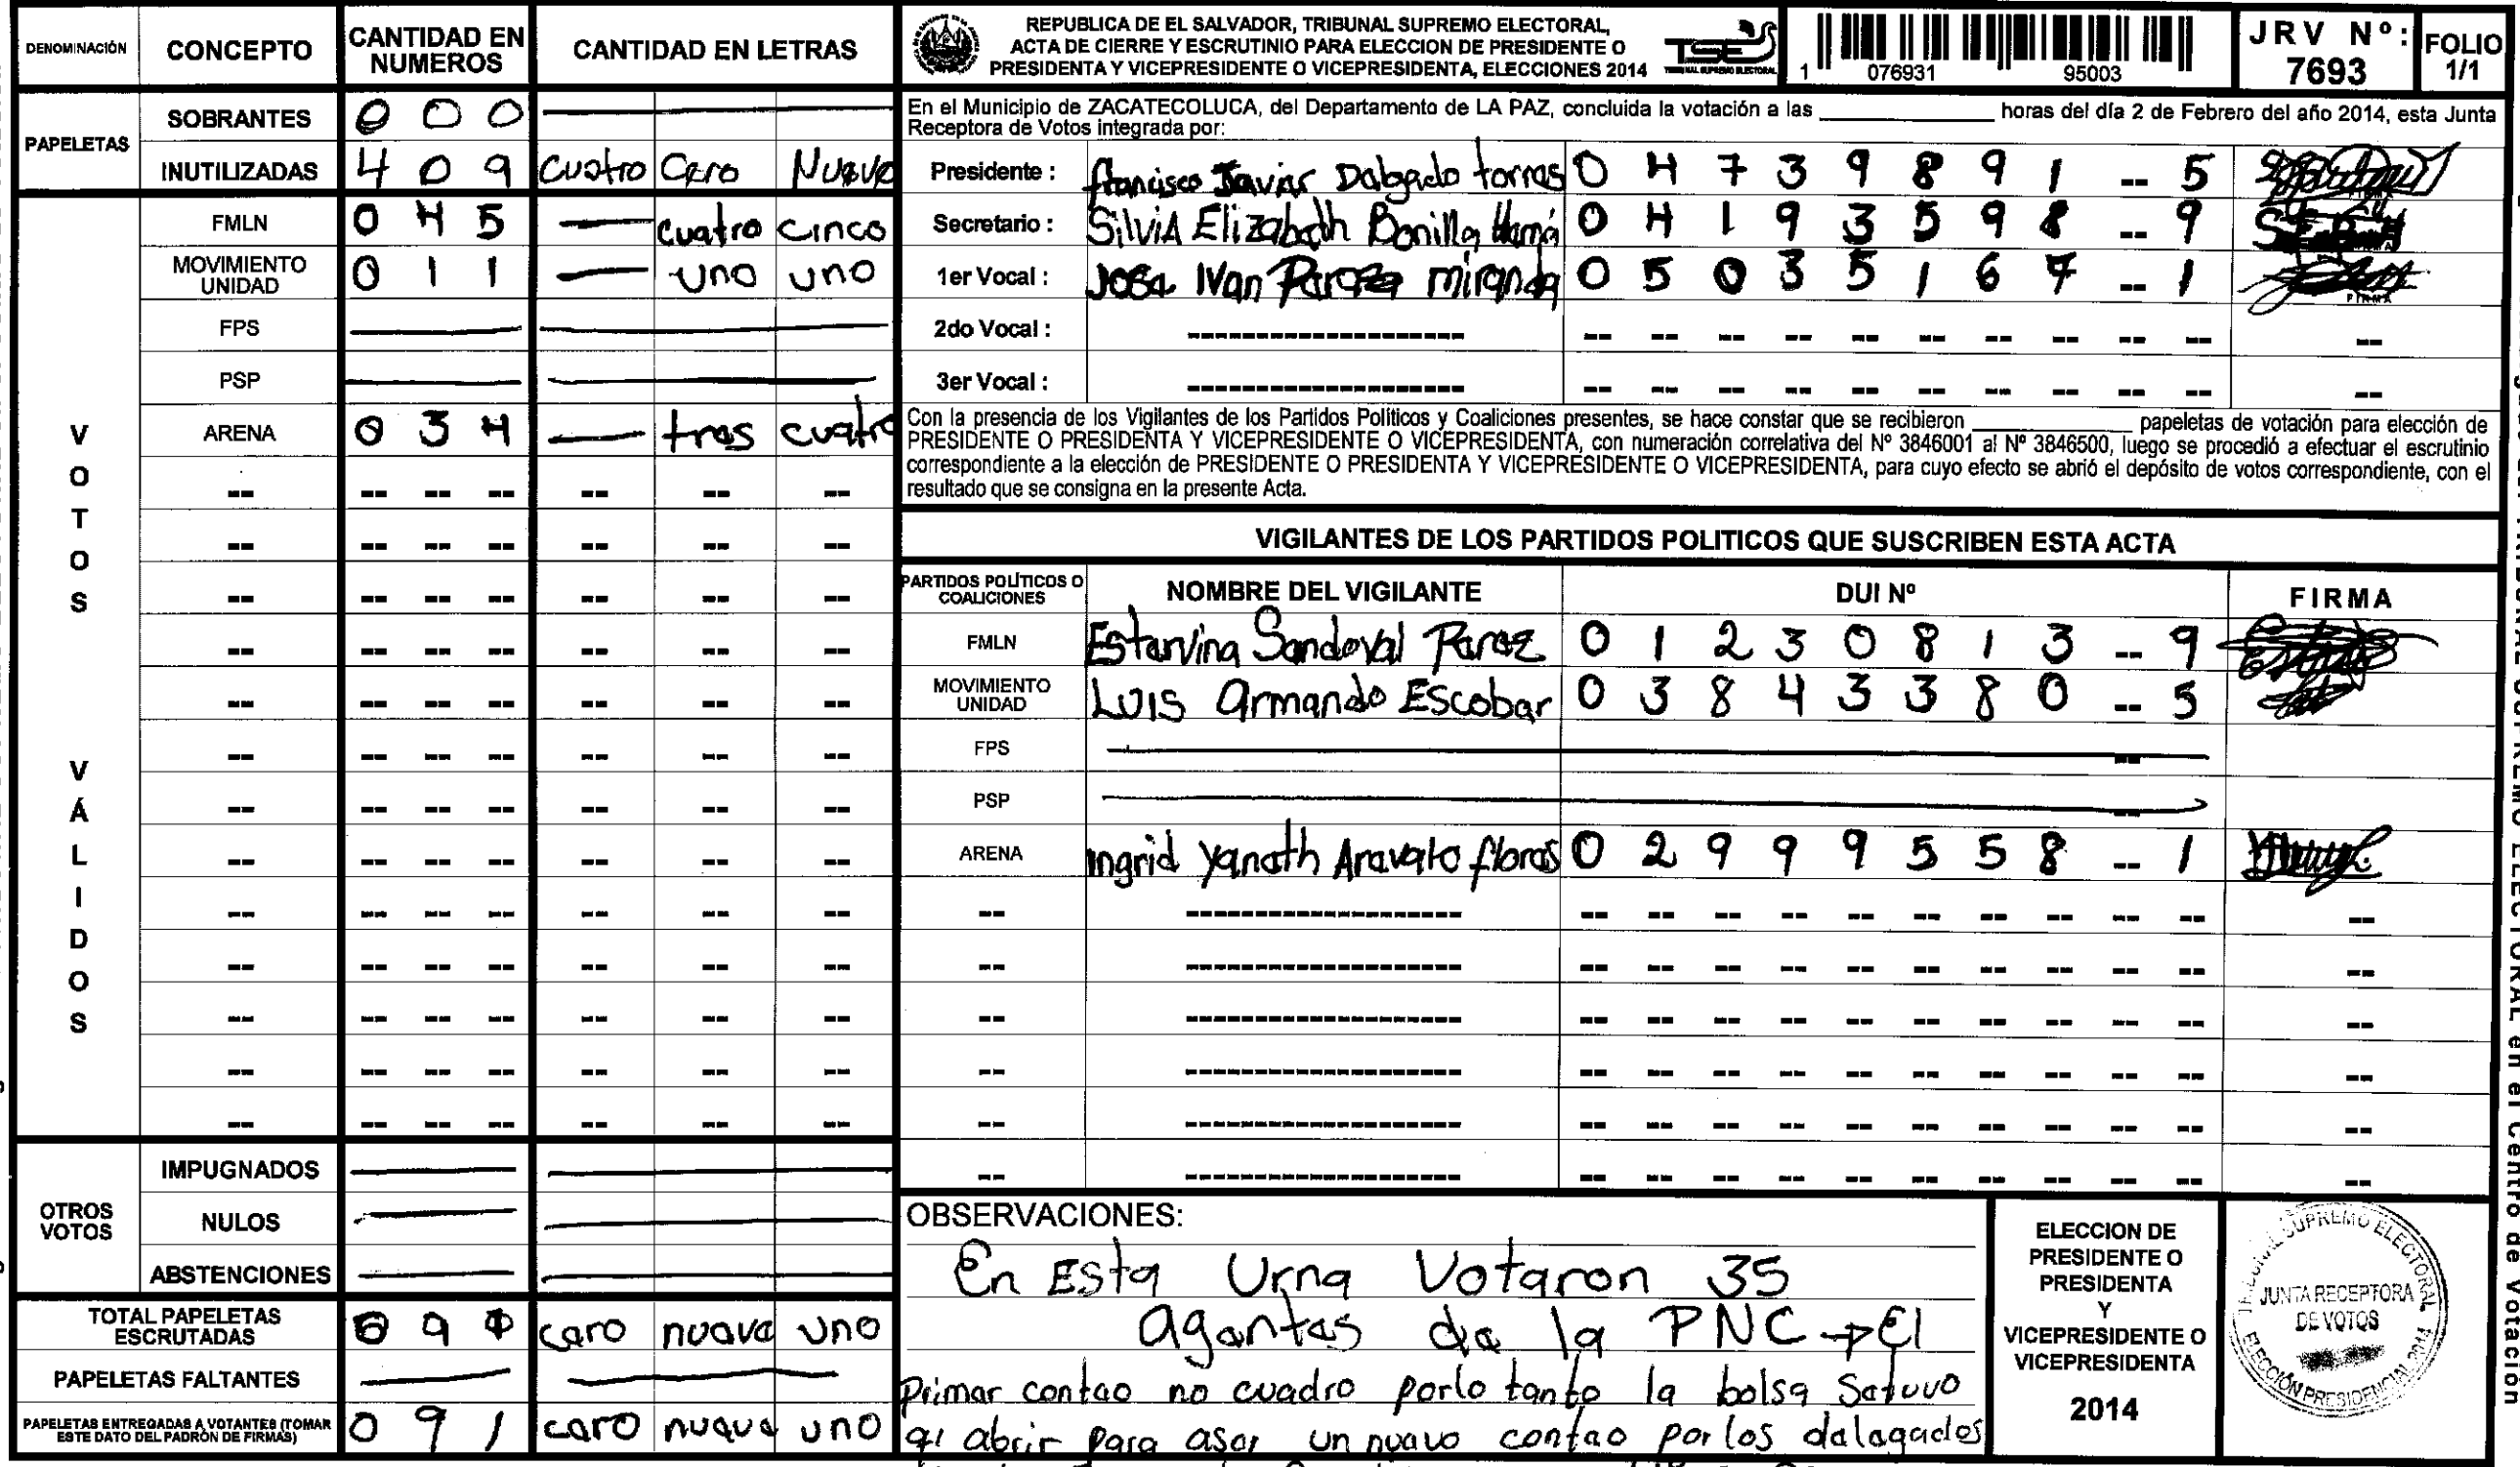 DENOMINACIÓN CONCEPTO CANTIDAD EN NUMEROS CANTIDAD EN LETRAS
PAPELETAS
SOBRANTES 0 0 0
INUTILIZADAS 4 0 9 cuatro Cero Nueve
VOTOS VÁLIDOS
FMLN 0 4 5 — cuatro cinco
MOVIMIENTO UNIDAD 0 1 1 — uno uno
FPS
PSP
ARENA 0 3 4 — tres cuatro
OTROS VOTOS
IMPUGNADOS
NULOS
ABSTENCIONES
TOTAL PAPELETAS ESCRUTADAS 0 9 1 cero nueve uno
PAPELETAS FALTANTES
PAPELETAS ENTREGADAS A VOTANTES (TOMAR ESTE DATO DEL PADRÓN DE FIRMAS) 0 9 1 cero nueve uno
REPUBLICA DE EL SALVADOR, TRIBUNAL SUPREMO ELECTORAL,
ACTA DE CIERRE Y ESCRUTINIO PARA ELECCION DE PRESIDENTE O
PRESIDENTA Y VICEPRESIDENTE O VICEPRESIDENTA, ELECCIONES 2014
TSE
TRIBUNAL SUPREMO ELECTORAL
1 076931 95003
JRV Nº: 7693
FOLIO 1/1
En el Municipio de ZACATECOLUCA, del Departamento de LA PAZ, concluida la votación a las ____ horas del día 2 de Febrero del año 2014, esta Junta
Receptora de Votos integrada por:
Presidente : francisco Javier Delgado torres 0 4 7 3 9 8 9 1 -- 5
Secretario : Silvia Elizabeth Bonilla 0 4 1 9 3 5 9 8 -- 9
1er Vocal : Jose Ivan Perez miranda 0 5 0 3 5 1 6 7 -- 1
FIRMA
2do Vocal :
3er Vocal :
Con la presencia de los Vigilantes de los Partidos Políticos y Coaliciones presentes, se hace constar que se recibieron ____ papeletas de votación para elección de
PRESIDENTE O PRESIDENTA Y VICEPRESIDENTE O VICEPRESIDENTA, con numeración correlativa del Nº 3846001 al Nº 3846500, luego se procedió a efectuar el escrutinio
correspondiente a la elección de PRESIDENTE O PRESIDENTA Y VICEPRESIDENTE O VICEPRESIDENTA, para cuyo efecto se abrió el depósito de votos correspondiente, con el
resultado que se consigna en la presente Acta.
VIGILANTES DE LOS PARTIDOS POLITICOS QUE SUSCRIBEN ESTA ACTA
PARTIDOS POLÍTICOS O COALICIONES NOMBRE DEL VIGILANTE DUI Nº FIRMA
FMLN Estervina Sandoval Perez 0 1 2 3 0 8 1 3 -- 9
MOVIMIENTO UNIDAD Luis armando Escobar 0 3 8 4 3 3 8 0 -- 5
FPS
PSP
ARENA Ingrid Yaneth Arevalo flores 0 2 9 9 9 5 5 8 -- 1
OBSERVACIONES:
En Esta Urna Votaron 35
agentes de la PNC → El
Primer conteo no cuadro porlo tanto la bolsa Setuvo
q' abrir para aser un nuevo conteo por los delegados
ELECCION DE
PRESIDENTE O
PRESIDENTA
Y
VICEPRESIDENTE O
VICEPRESIDENTA
2014
TRIBUNAL SUPREMO ELECTORAL
JUNTA RECEPTORA
DE VOTOS
ELECCIÓN PRESIDENCIAL 2014
TRIBUNAL SUPREMO ELECTORAL en el Centro de Votación